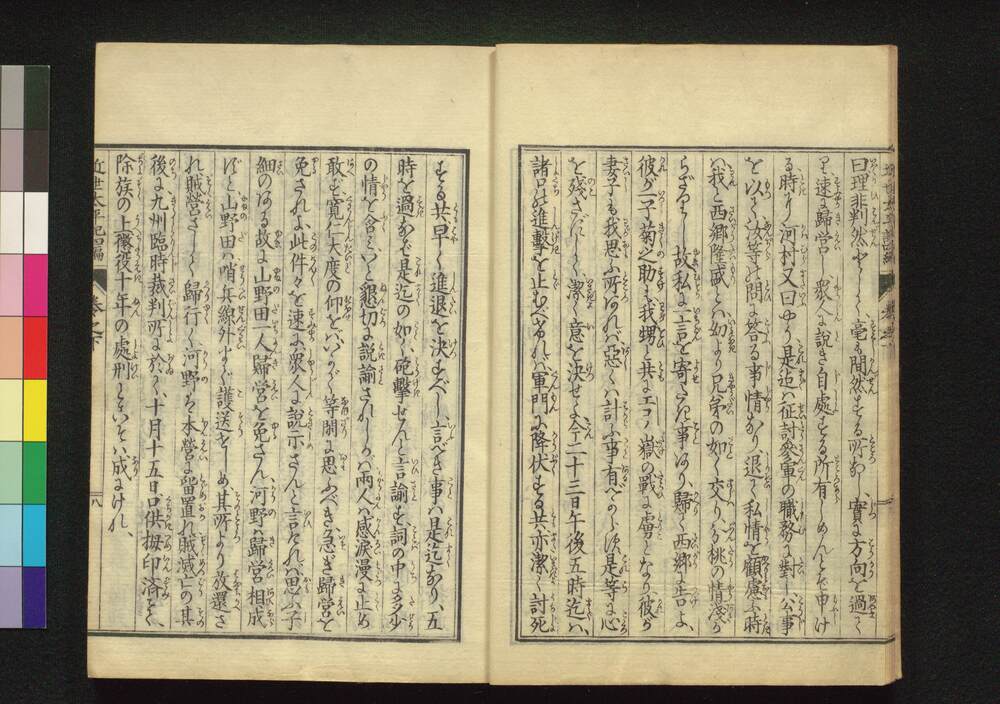 曰理非判然せり毫も間然する所なし實に方向を過
り速に歸営し衆へも説き自處する所有しめんとぞ申け
る時に河村又曰やう是迄ハ征討參軍の職務に對し公事
を以て汝等の問に答る事情なり退て私情を顧慮ふ時
ハ我と西郷隆盛とハ如より兄弟の如く交り分桃の情淺か
らざりし故私に一言を寄たき事あり歸て西郷に告よ
彼が一子菊之助も我甥と共にエコノ嶽の戰に虜となり彼が
妻子も我思ふ所あれバ惡くハ計ふ事有べからず是等に心
を殘さずして潔く意を決せよ今二十三日午後五時迄ハ
諸口の進撃を止むべけれバ軍門に降状する共亦潔く討死
する共早く進退を決すべし言べき事ハ是迄なり五
時を過なバ是迄の如く砲撃せんと言諭す詞の中に多少
の情を含ミいと懇切に説諭されしかバ兩人ハ感涙漫に止め
敢ず寛仁大度の仰をバいかで等閑に思ふべき急ぎ歸営を
免されよ此件々を速に衆人に説示さんと言けれバ思ふ子
細のある故に山野田一人歸営を免さん河野ハ歸営相成
ずと山野田ハ哨兵線外まで護送せしめ其所より放還さ
れ賊営さして歸行く河野をバ本営に留置れ賊滅亡の其
後に九州臨時裁判所に於て十月十五日口供拇印済て
除族の上懲役十年の處刑とこそハ成にけれ
近世太平記編
巻之下
八